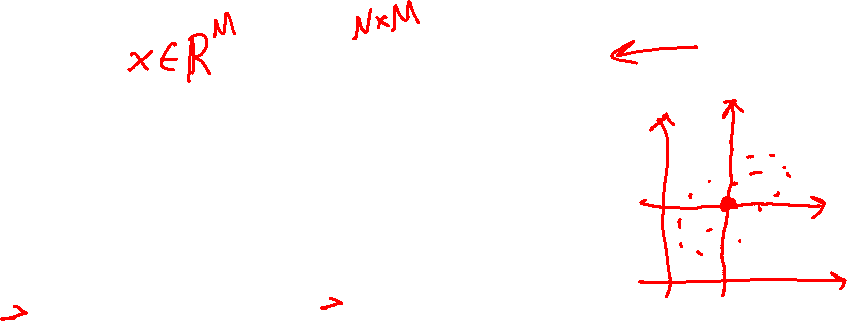 x ∈ ℝ^M
N×M